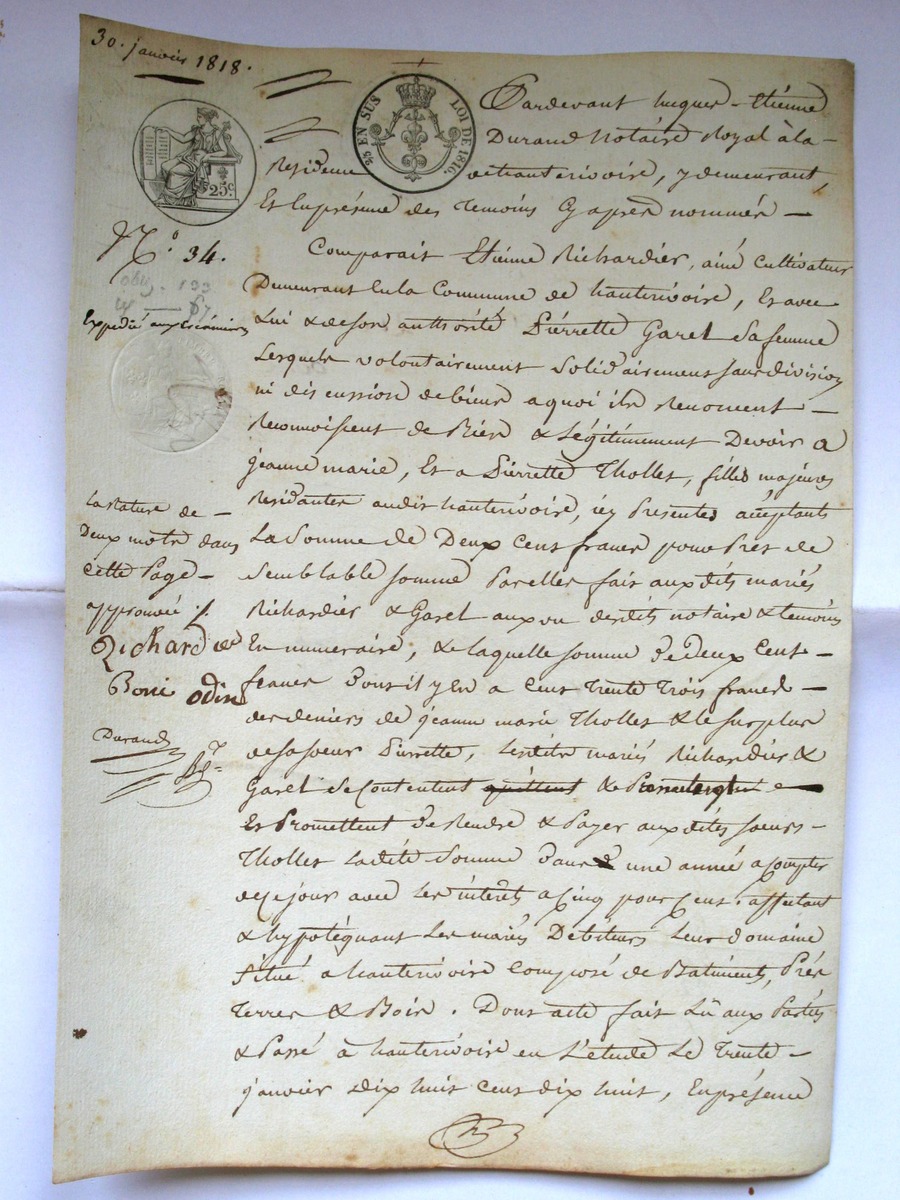 30. janvier 1818.
25 EN SUS LOI DE 1816.
25c.
Pardevant hugues-Etiénne
Durand Notaire Royal à la-
Residence de hauterivoire, y demeurant,
Et En présence des Temoins Cy après nommés —
N.o 34.
Comparait Etiénne Richardier, ainé Cultivateur
oblig. 133
67
Demeurant En la Commune de hauterivoire, Et avec
Expedié aux créanciers
Lui & de son authorité Piérrette Garel sa femme
Lesquels volontairement Solidairement sans division
ni discussion de biens a quoi ils Renoncent —
Reconnoissent de Bien & Légitimement Devoir a
jeanne marie, Et a Piérrette Tholles, filles majeures
Residantes audit hauterivoire, icy Presentes acceptants
La Somme de Deux Cent francs pour Prêt de
Semblable somme Par elles fait aux dits mariés
Richardier & Garel au vu desdits notaire & temoins
En numeraire, de laquelle somme de Deux Cent-
francs Dont il y En a Cent Trente Trois francs —
des deniers de jeanne marie Tholles & le surplus
de sa soeur Pierrette, Lesdits mariés Richardier &
Garel se Contentent quittent &
Et Promettent De Rendre & Payer aux dités soeurs-
Tholles Ladité Somme Dans une année a Compter
de Ce jour avec Les intérets a Cinq pour Cent. affectant
& hypotéquant Les mariés Débiteurs Leur domaine
Situé a hauterivoire Composé de Batiments, Prés
Terres & Bois. Dont acte fait Lû aux Partiés
& Passé à hauterivoire en L'etude Le Trente-
janvier Dix huit Cent dix huit, En présence
La rature de —
Deux mots dans
cette Page —
approuvée
Richardier
Boni odin
Durand